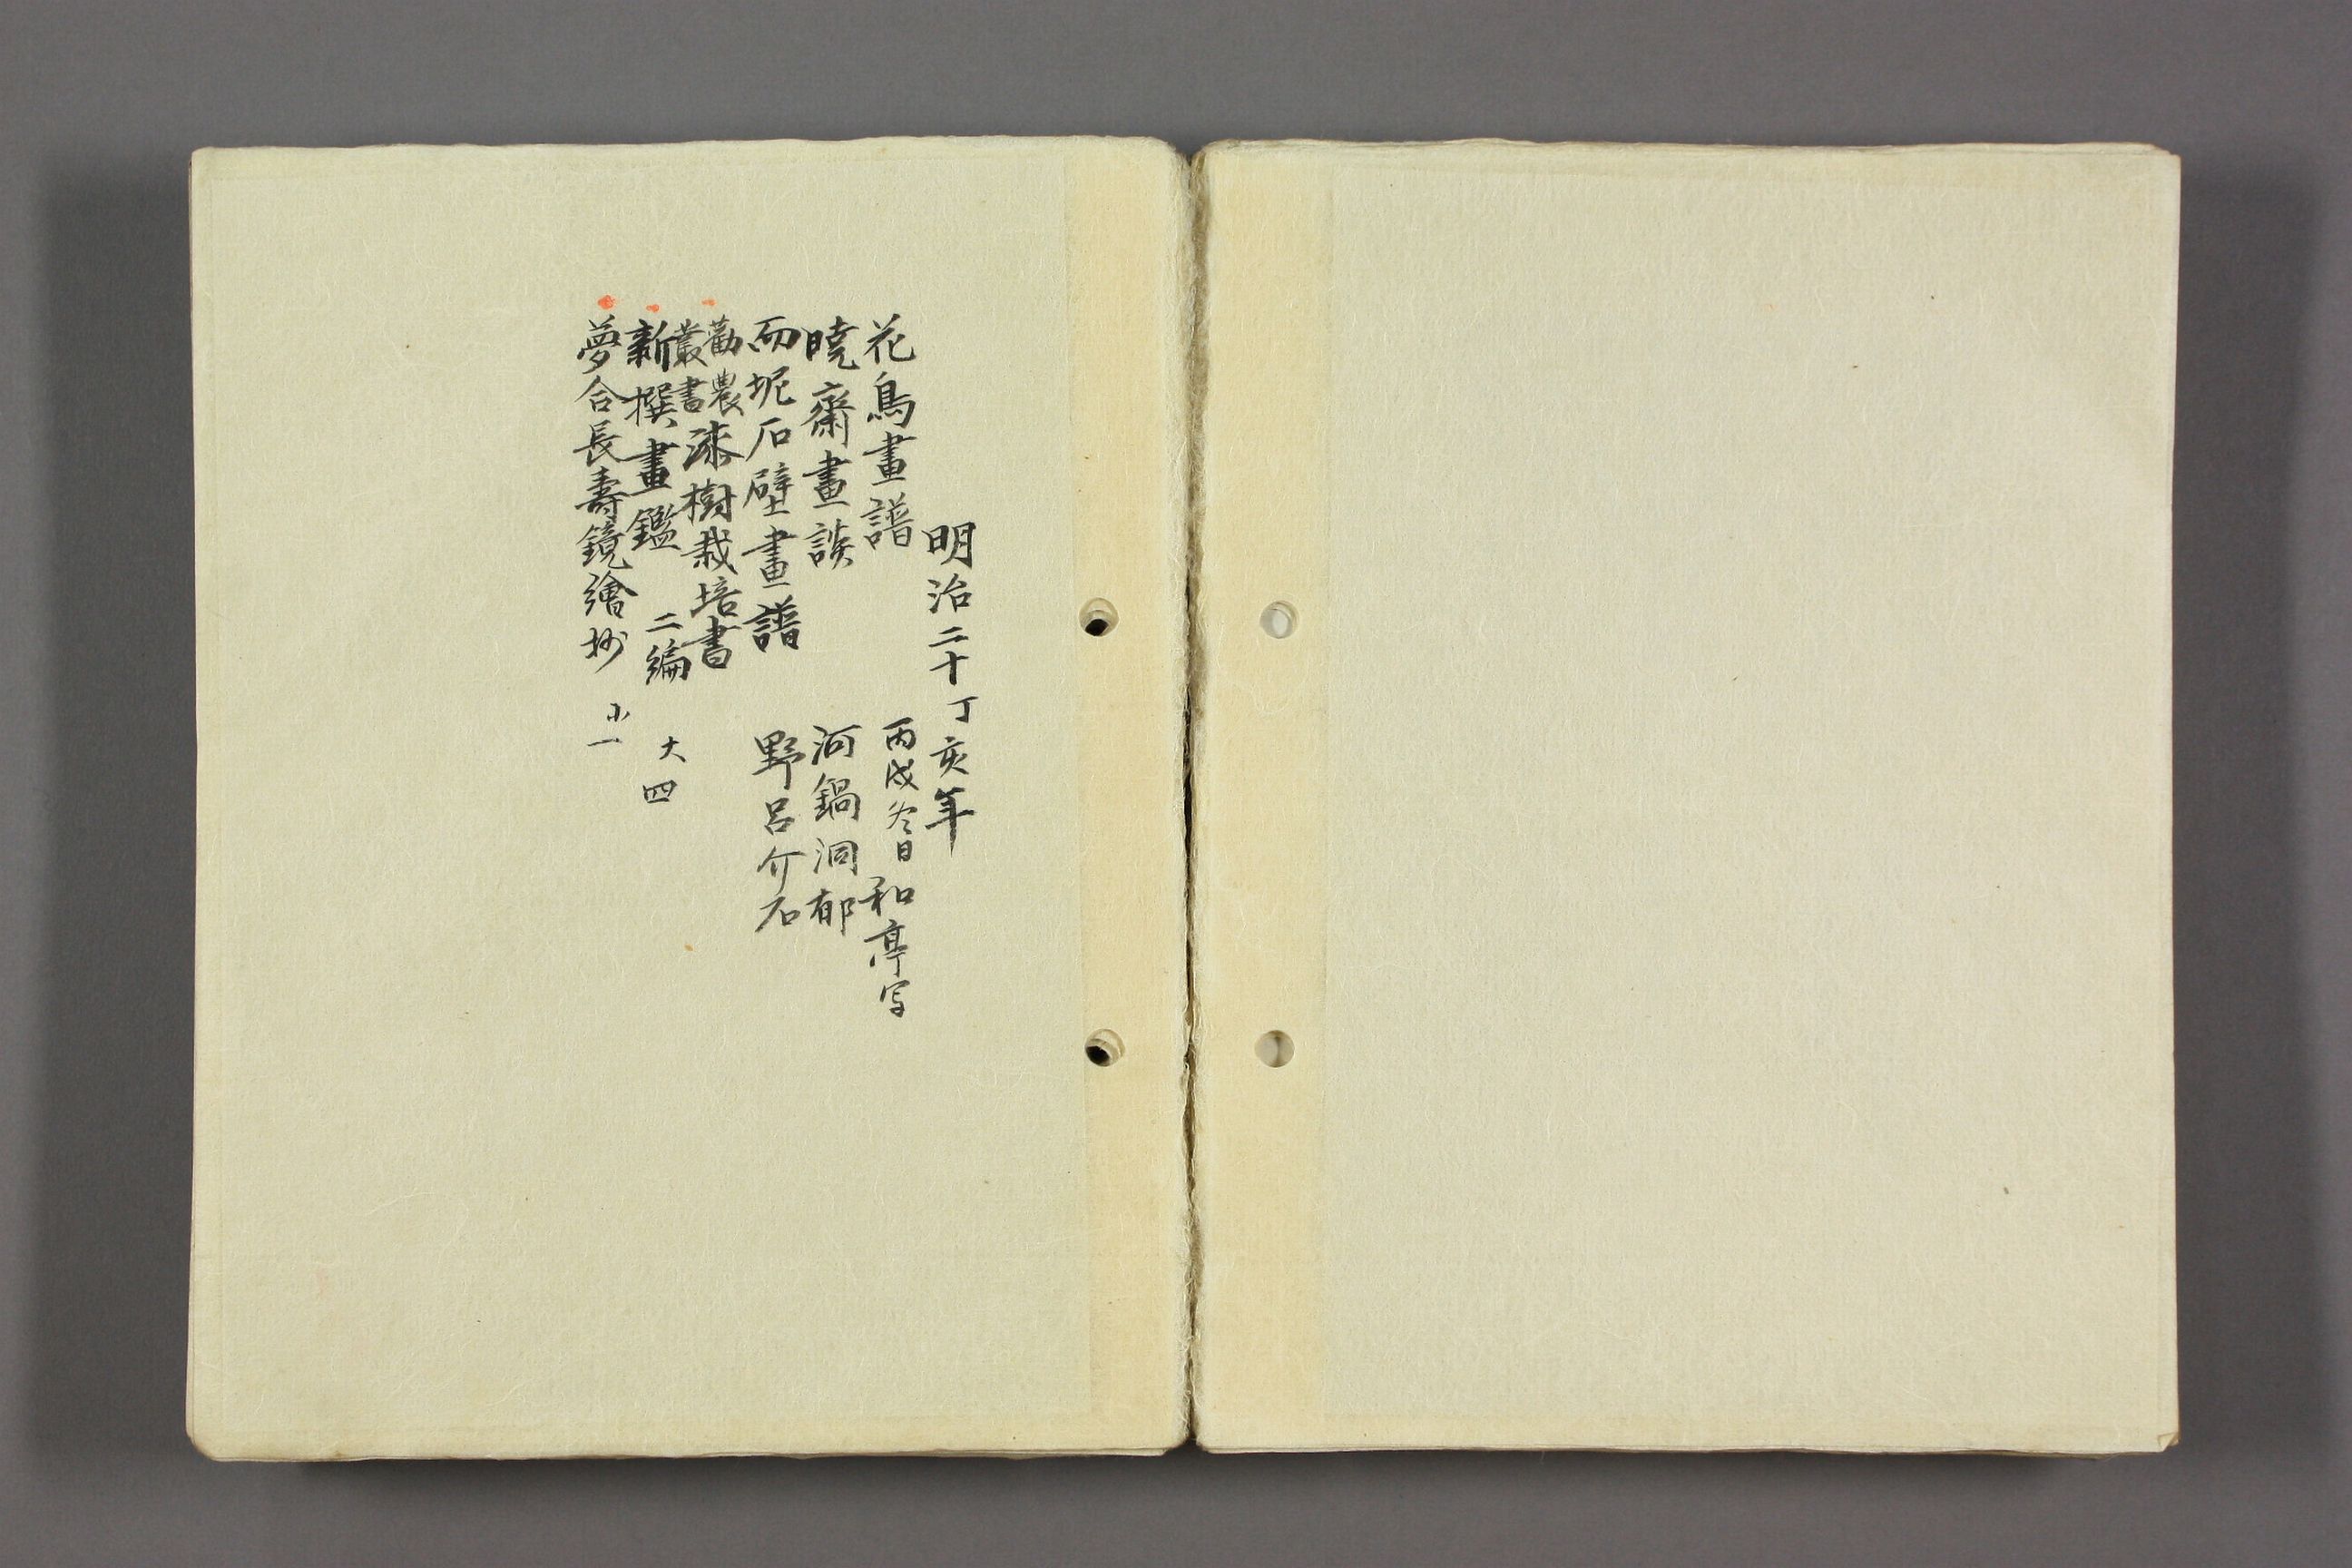 明治二十丁亥年
花鳥畫譜 丙戌冬日 和亭写
暁齋畫談 河鍋洞郁
而妮石壁畫譜 野呂介石
勸農叢書 漆樹栽培書
新撰畫鑑 二編 大四
夢合長壽鏡繪抄 小一